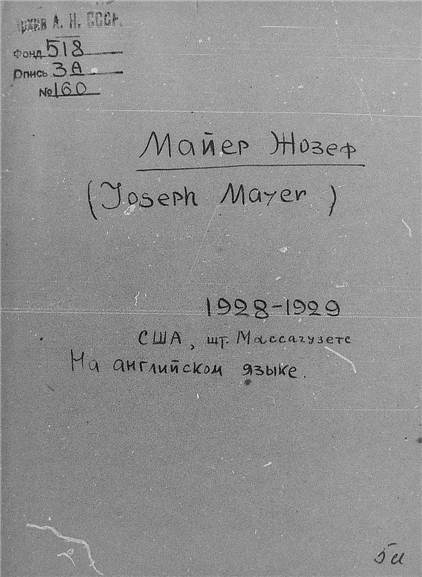 Архив А. Н. СССР.
Фонд 518
Опись 3А
№ 160
Майер Жозеф
(Joseph Mayer)
1928-1929
США, шт. Массагузетс
На английском языке.